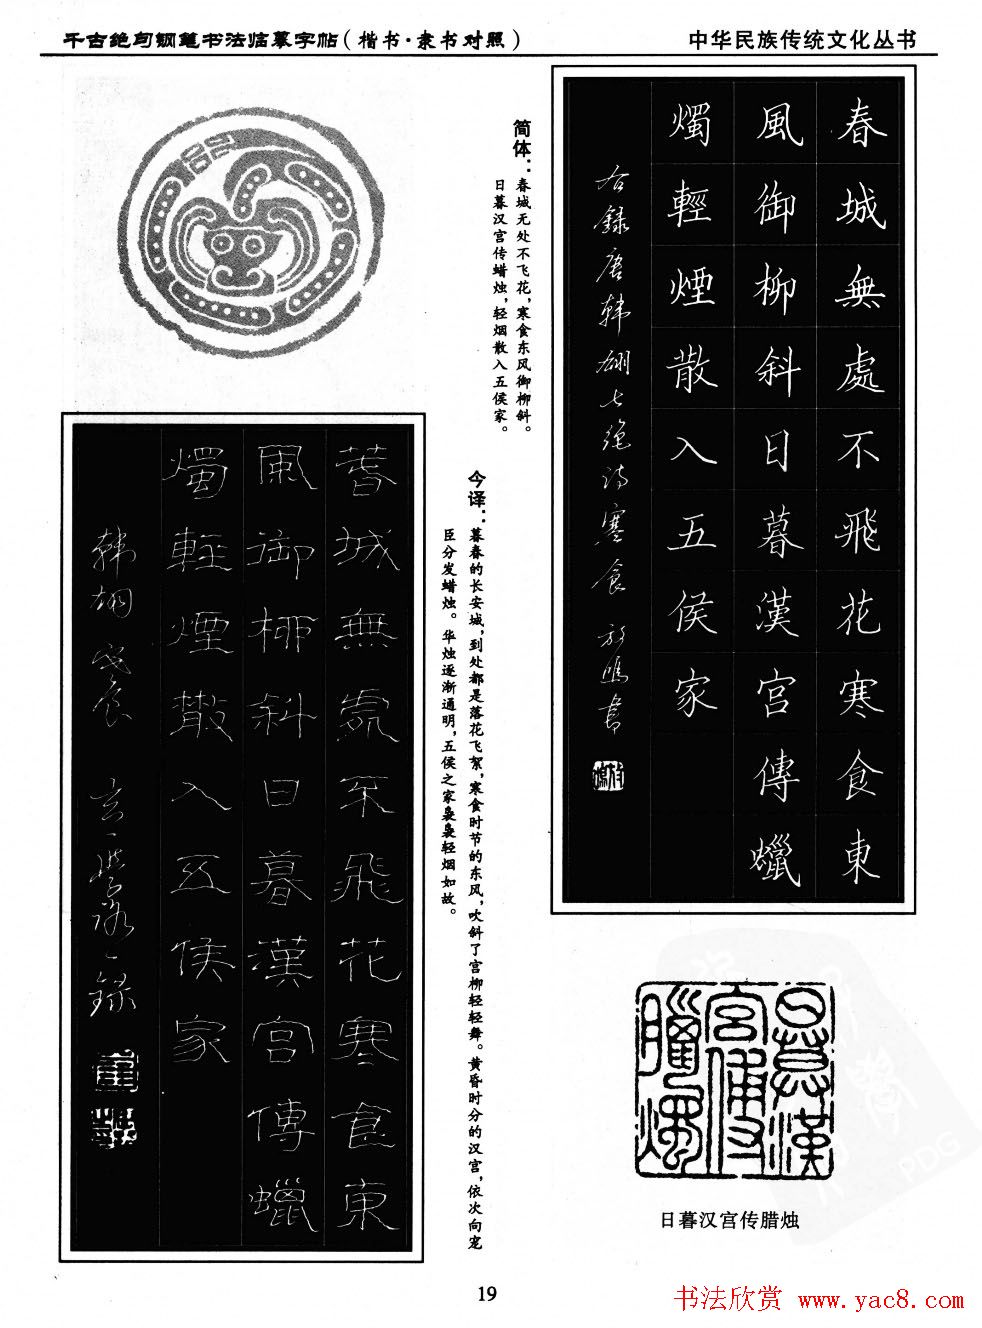 千古绝句钢笔书法临摹字帖（楷书·隶书对照）
中华民族传统文化丛书
春城無處不飛花寒食東
風御柳斜日暮漢宮傳蠟
燭輕煙散入五侯家
右錄唐韩翃七绝诗寒食
简体：春城无处不飞花，寒食东风御柳斜。
日暮汉宫传蜡烛，轻烟散入五侯家。
今译：暮春的长安城，到处都是落花飞絮，寒食时节的东风，吹斜了宫柳轻轻舞。黄昏时分的汉宫，依次向宠
臣分发蜡烛。华烛逐渐通明，五侯之家袅袅轻烟如故。
春城無處不飛花寒食東
風御柳斜日暮漢宮傳蠟
燭輕煙散入五侯家
日暮漢
宮傳
臘燭
日暮汉宫传腊烛
PDG
19
书法欣赏 www.yac8.com